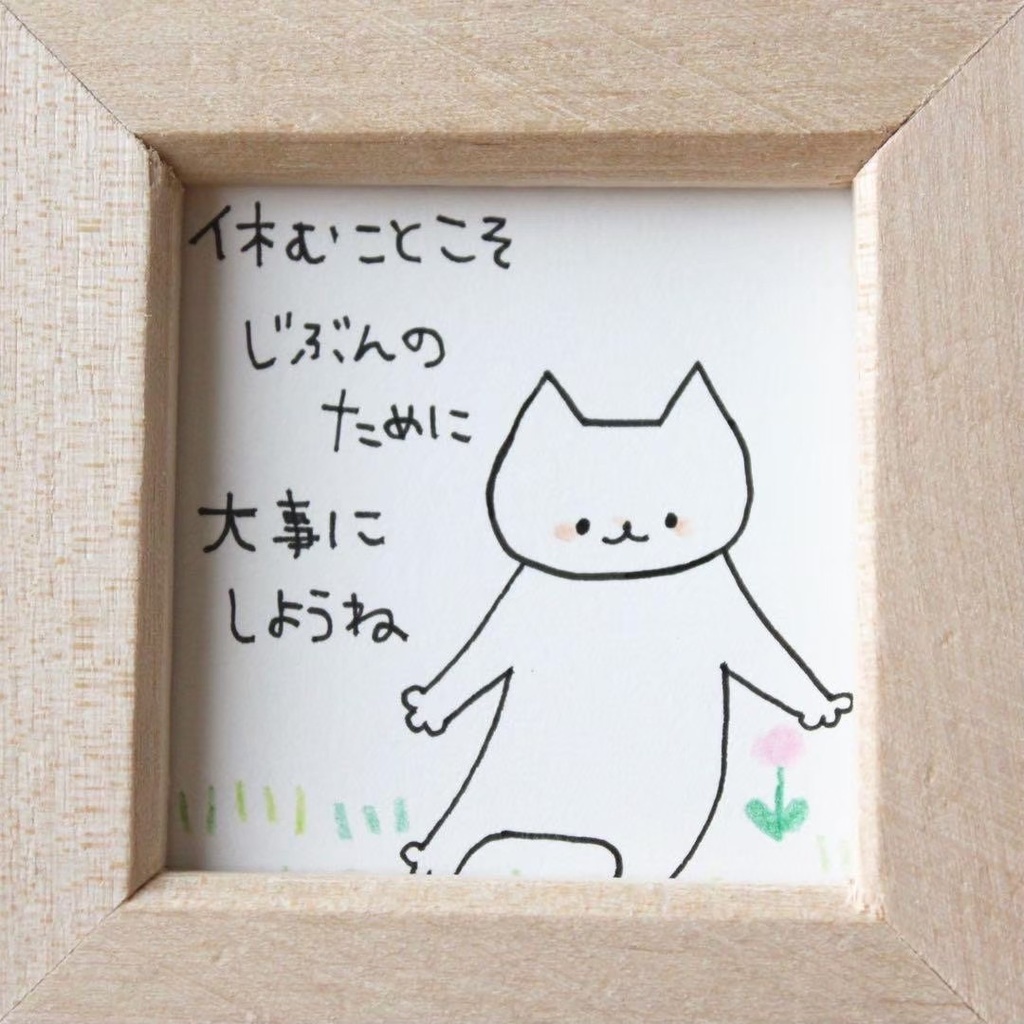 休むことこそ
じぶんの
ために
大事に
しようね